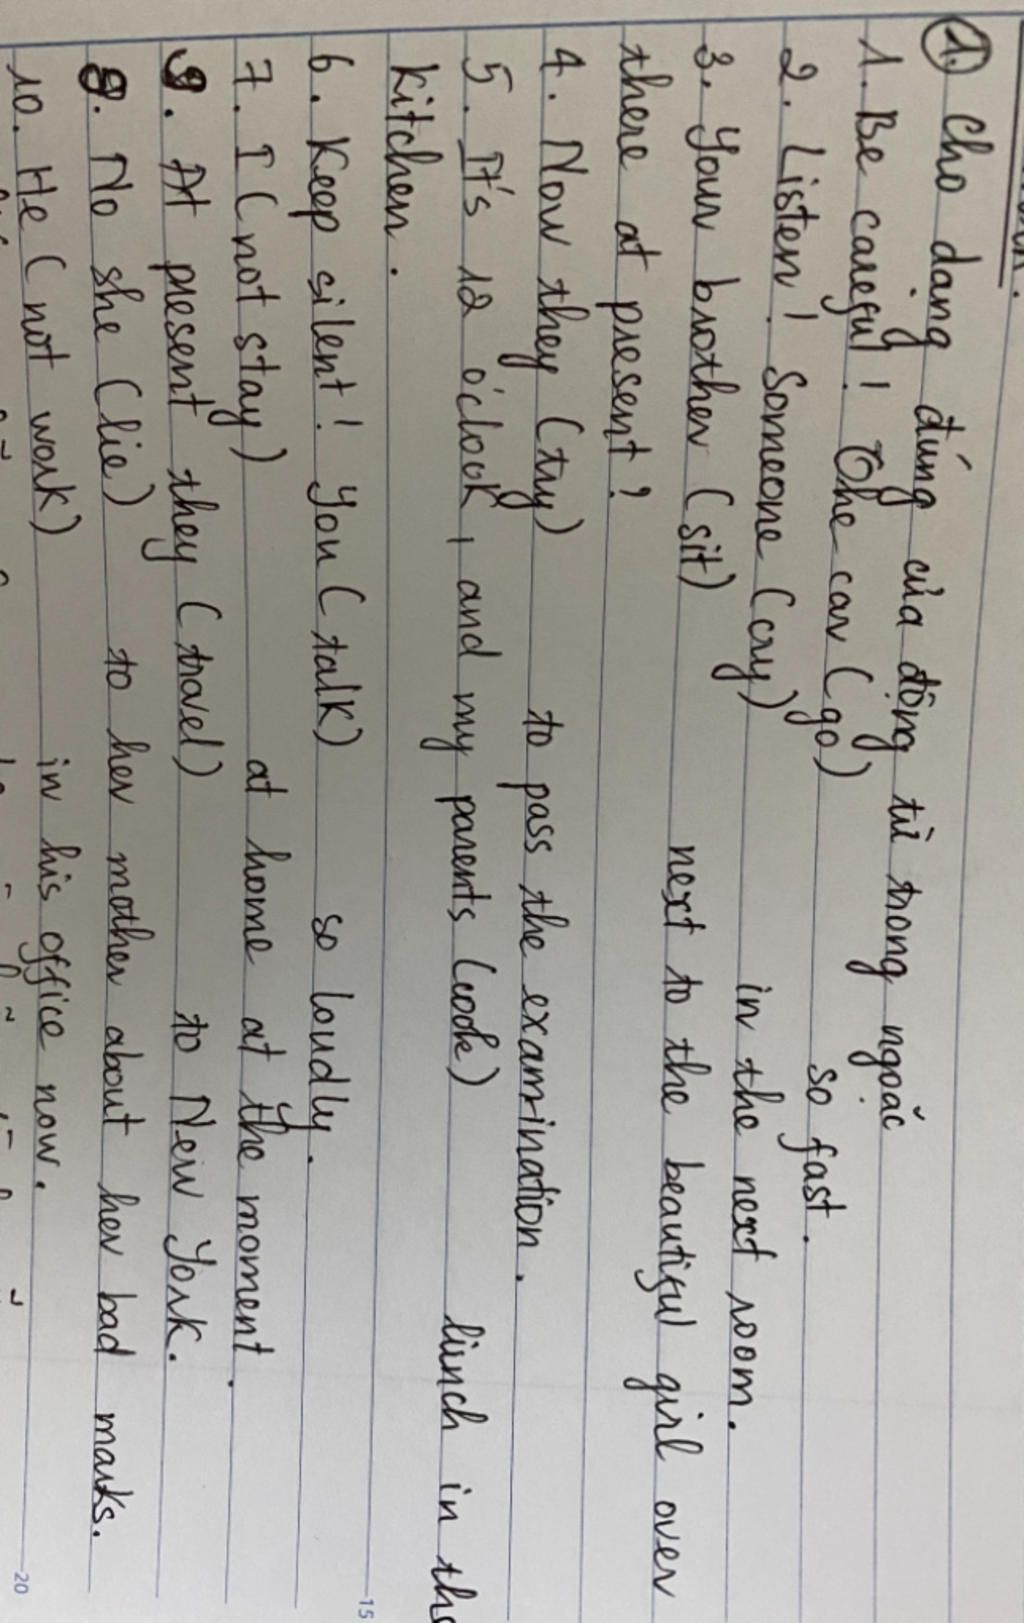 ① Cho dạng đúng của động từ trong ngoặc
1. Be careful! The car (go) so fast.
2. Listen! Someone (cry) in the next room.
3. Your brother (sit) next to the beautiful girl over
there at present?
4. Now they (try) to pass the examination.
5. It's 12 o'clock, and my parents (cook) lunch in the
kitchen.
6. Keep silent! You (talk) so loudly.
7. I (not stay) at home at the moment.
9. At present they (travel) to New York.
8. No she (lie) to her mother about her bad marks.
10. He (not work) in his office now.
15
20